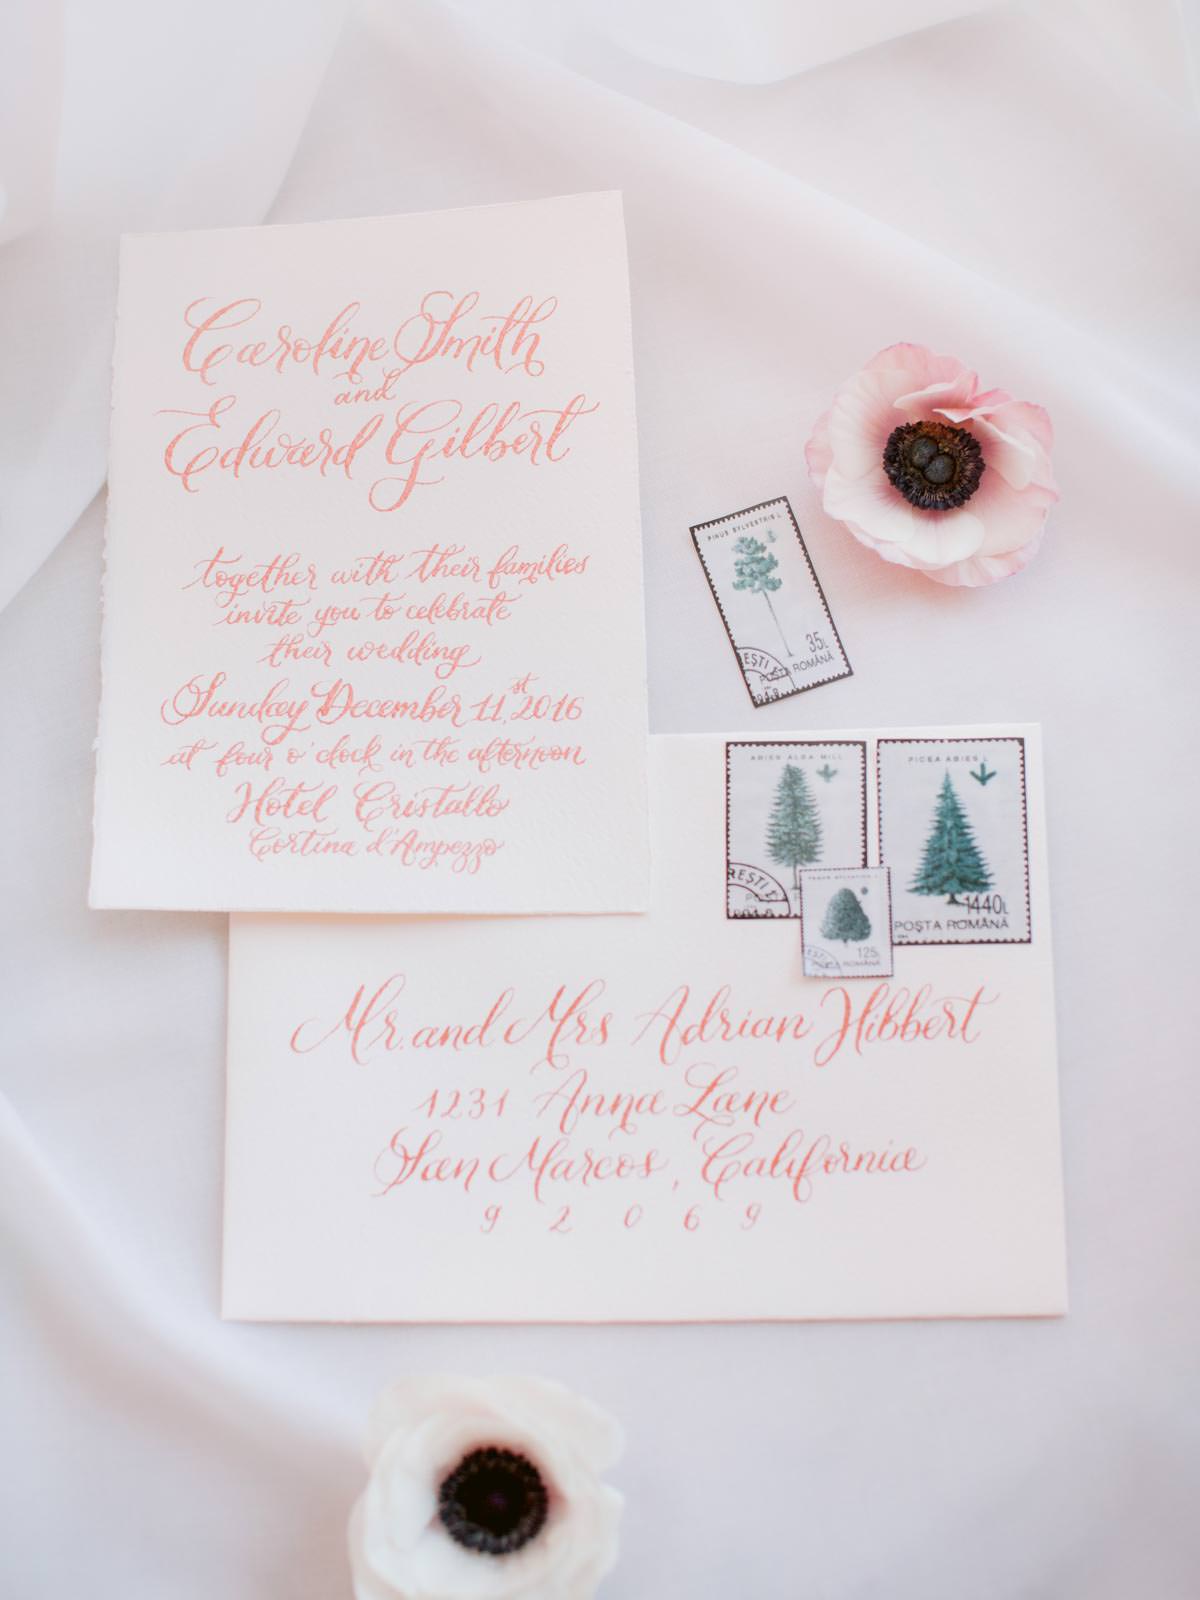 Caroline Smith
and
Edward Gilbert
together with their families
invite you to celebrate
their wedding
Sunday December 11st, 2016
at four o'clock in the afternoon
Hotel Cristallo
Cortina d'Ampezzo
PINUS SYLVESTRIS L
35L
POSTA ROMÂNĂ
ABIES ALBA MILL
PICEA ABIES L
1440L
POŞTA ROMÂNĂ
125L
Mr. and Mrs Adrian Hibbert
1231 Anna Lane
San Marcos, California
9 2 0 6 9